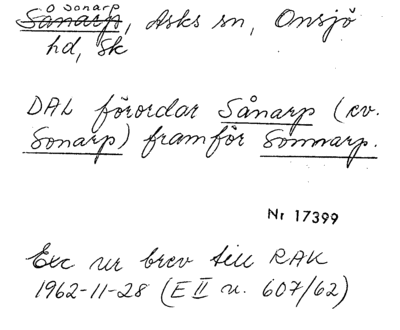 Sånarp
o Sonarp, Asks sn, Onsjö
hd, Sk
DAL förordar Sånarp (ev.
Sonarp) framför Sonnarp.
Nr 17399
Exc ur brev till RAK
1962-11-28 (E II u. 607/62)